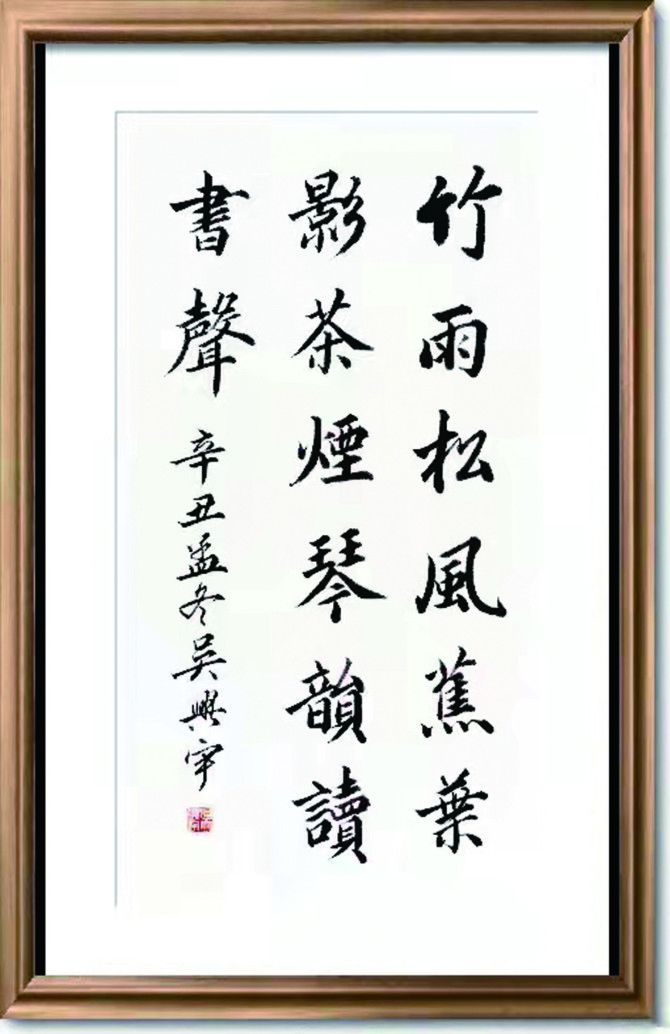 竹雨松風蕉葉
影茶煙琴韻讀
書聲 辛丑孟冬吳興宇